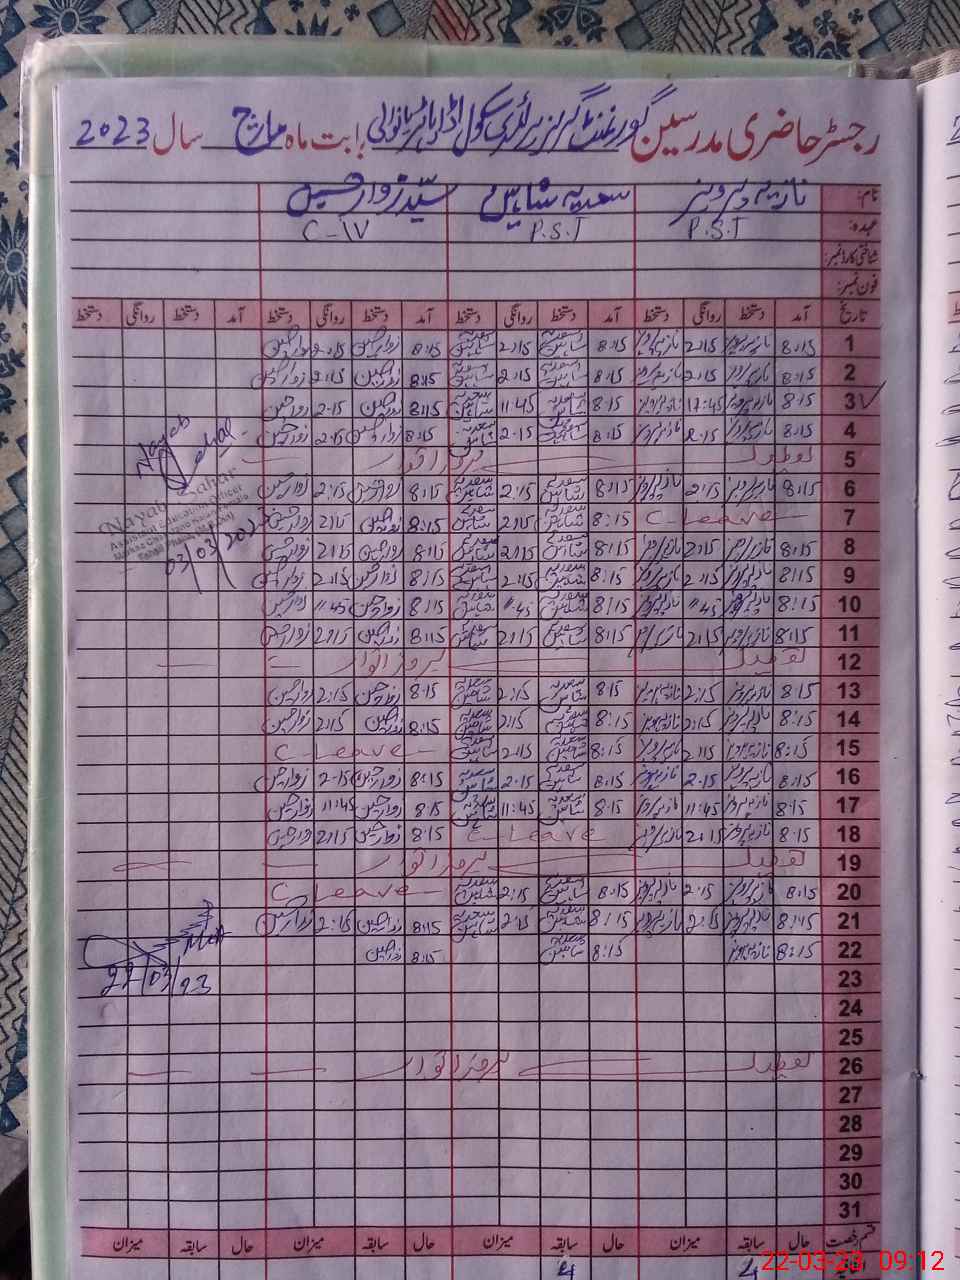 رجسٹر حاضری مدرسین گورنمنٹ گرلز پرائمری سکول بابت ماہ مارچ سال 2023
نام: نازیہ پروین سعدیہ شاہین سیّد زوار حسین
عہدہ: P.S.T P.S.T C-IV
شناختی کارڈ نمبر:
فون نمبر:
تاریخ آمد دستخط روانگی دستخط آمد دستخط روانگی دستخط آمد دستخط روانگی دستخط آمد دستخط روانگی دستخط
1 8:15 نازیہ پروین 2:15 نازیہ پروین 8:15 سعدیہ شاہین 2:15 سعدیہ شاہین 8:15 زوار حسین 2:15 زوار حسین
2 8:15 نازیہ پروین 2:15 نازیہ پروین 8:15 سعدیہ شاہین 2:15 سعدیہ شاہین 8:15 زوار حسین 2:15 زوار حسین
3 8:15 نازیہ پروین 11:45 نازیہ پروین 8:15 سعدیہ شاہین 11:45 سعدیہ شاہین 8:15 زوار حسین 2:15 زوار حسین
4 8:15 نازیہ پروین 2:15 نازیہ پروین 8:15 سعدیہ شاہین 2:15 سعدیہ شاہین 8:15 زوار حسین 2:15 زوار حسین
5 تعطیل بروز اتوار
6 8:15 نازیہ پروین 2:15 نازیہ پروین 8:15 سعدیہ شاہین 2:15 سعدیہ شاہین 8:15 زوار حسین 2:15 زوار حسین
7 C-Leave 8:15 سعدیہ شاہین 2:15 سعدیہ شاہین 8:15 زوار حسین 2:15 زوار حسین
8 8:15 نازیہ پروین 2:15 نازیہ پروین 8:15 سعدیہ شاہین 2:15 سعدیہ شاہین 8:15 زوار حسین 2:15 زوار حسین
9 8:15 نازیہ پروین 2:15 نازیہ پروین 8:15 سعدیہ شاہین 2:15 سعدیہ شاہین 8:15 زوار حسین 2:15 زوار حسین
10 8:15 نازیہ پروین 11:45 نازیہ پروین 8:15 سعدیہ شاہین 11:45 سعدیہ شاہین 8:15 زوار حسین 11:45 زوار حسین
11 8:15 نازیہ پروین 2:15 نازیہ پروین 8:15 سعدیہ شاہین 2:15 سعدیہ شاہین 8:15 زوار حسین 2:15 زوار حسین
12 تعطیل بروز اتوار
13 8:15 نازیہ پروین 2:15 نازیہ پروین 8:15 سعدیہ شاہین 2:15 سعدیہ شاہین 8:15 زوار حسین 2:15 زوار حسین
14 8:15 نازیہ پروین 2:15 نازیہ پروین 8:15 سعدیہ شاہین 2:15 سعدیہ شاہین 8:15 زوار حسین 2:15 زوار حسین
15 8:15 نازیہ پروین 2:15 نازیہ پروین 8:15 سعدیہ شاہین 2:15 سعدیہ شاہین C-Leave
16 8:15 نازیہ پروین 2:15 نازیہ پروین 8:15 سعدیہ شاہین 2:15 سعدیہ شاہین 8:15 زوار حسین 2:15 زوار حسین
17 8:15 نازیہ پروین 11:45 نازیہ پروین 8:15 سعدیہ شاہین 11:45 سعدیہ شاہین 8:15 زوار حسین 11:45 زوار حسین
18 8:15 نازیہ پروین 2:15 نازیہ پروین C-Leave 8:15 زوار حسین 2:15 زوار حسین
19 تعطیل بروز اتوار
20 8:15 نازیہ پروین 2:15 نازیہ پروین 8:15 سعدیہ شاہین 2:15 سعدیہ شاہین C-Leave
21 8:15 نازیہ پروین 2:15 نازیہ پروین 8:15 سعدیہ شاہین 2:15 سعدیہ شاہین 8:15 زوار حسین 2:15 زوار حسین
22 8:15 نازیہ پروین 8:15 سعدیہ شاہین 8:15 زوار حسین
23
24
25
26 تعطیل بروز اتوار
27
28
29
30
31
قسم رخصت حال سابقہ میزان حال سابقہ میزان حال سابقہ میزان حال سابقہ میزان
Nayab Sahar
(Nayab Sahar)
Assistant Education Officer
03/03/2023
22/03/23
22-03-23 09:12